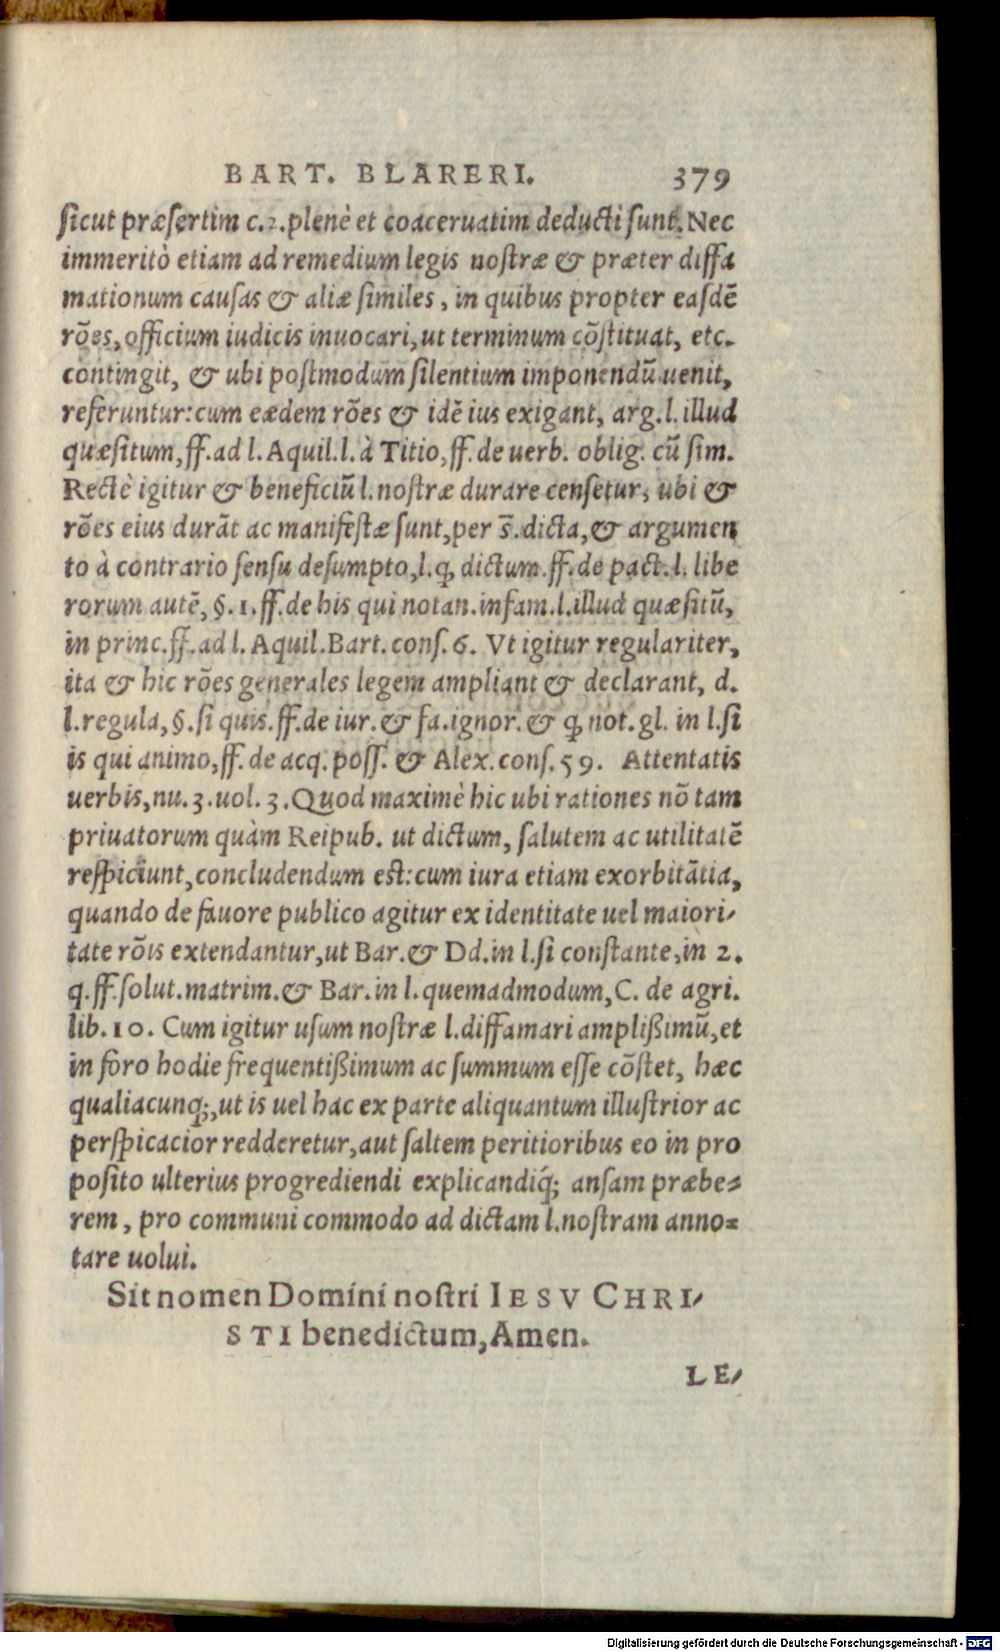 BART. BLARERI. 379
sicut præsertim c.2.plenè et coaceruatim deducti sunt. Nec
immeritò etiam ad remedium legis nostræ & præter diffa
mationum causas & aliæ similes, in quibus propter easdē
rões, officium iudicis inuocari, ut terminum cõstituat, etc.
contingit, & ubi postmodum silentium imponendū uenit,
referuntur: cum eædem rões & idē ius exigant, arg. l. illud
quæsitum, ff. ad l. Aquil. l. à Titio, ff. de uerb. oblig. cū sim.
Rectè igitur & beneficiū l. nostræ durare censetur, ubi &
rões eius durāt ac manifestæ sunt, per s̄. dicta, & argumen
to à contrario sensu desumpto, l. ꝗ dictum. ff. de pact. l. libe
rorum autē, §. 1. ff. de his qui notan. infam. l. illud quæsitū,
in princ. ff. ad l. Aquil. Bart. cons. 6. Vt igitur regulariter,
ita & hic rões generales legem ampliant & declarant, d.
l. regula, §. si quis. ff. de iur. & fa. ignor. & ꝗ not. gl. in l. si
is qui animo, ff. de acq. poss. & Alex. cons. 59. Attentatis
uerbis, nu. 3. uol. 3. Quod maximè hic ubi rationes nõ tam
priuatorum quàm Reipub. ut dictum, salutem ac utilitatē
respiciunt, concludendum est: cum iura etiam exorbitātia,
quando de fauore publico agitur ex identitate uel maiori-
tate rõis extendantur, ut Bar. & Dd. in l. si constante, in 2.
q. ff. solut. matrim. & Bar. in l. quemadmodum, C. de agri.
lib. 10. Cum igitur usum nostræ l. diffamari amplißimū, et
in foro hodie frequentißimum ac summum esse cõstet, hæc
qualiacunq;, ut is uel hac ex parte aliquantum illustrior ac
perspicacior redderetur, aut saltem peritioribus eo in pro
posito ulterius progrediendi explicandiq́; ansam præbe-
rem, pro communi commodo ad dictam l. nostram anno-
tare uolui.
Sit nomen Domini nostri IESV CHRI-
STI benedictum, Amen.
LE-
Digitalisierung gefördert durch die Deutsche Forschungsgemeinschaft - DFG